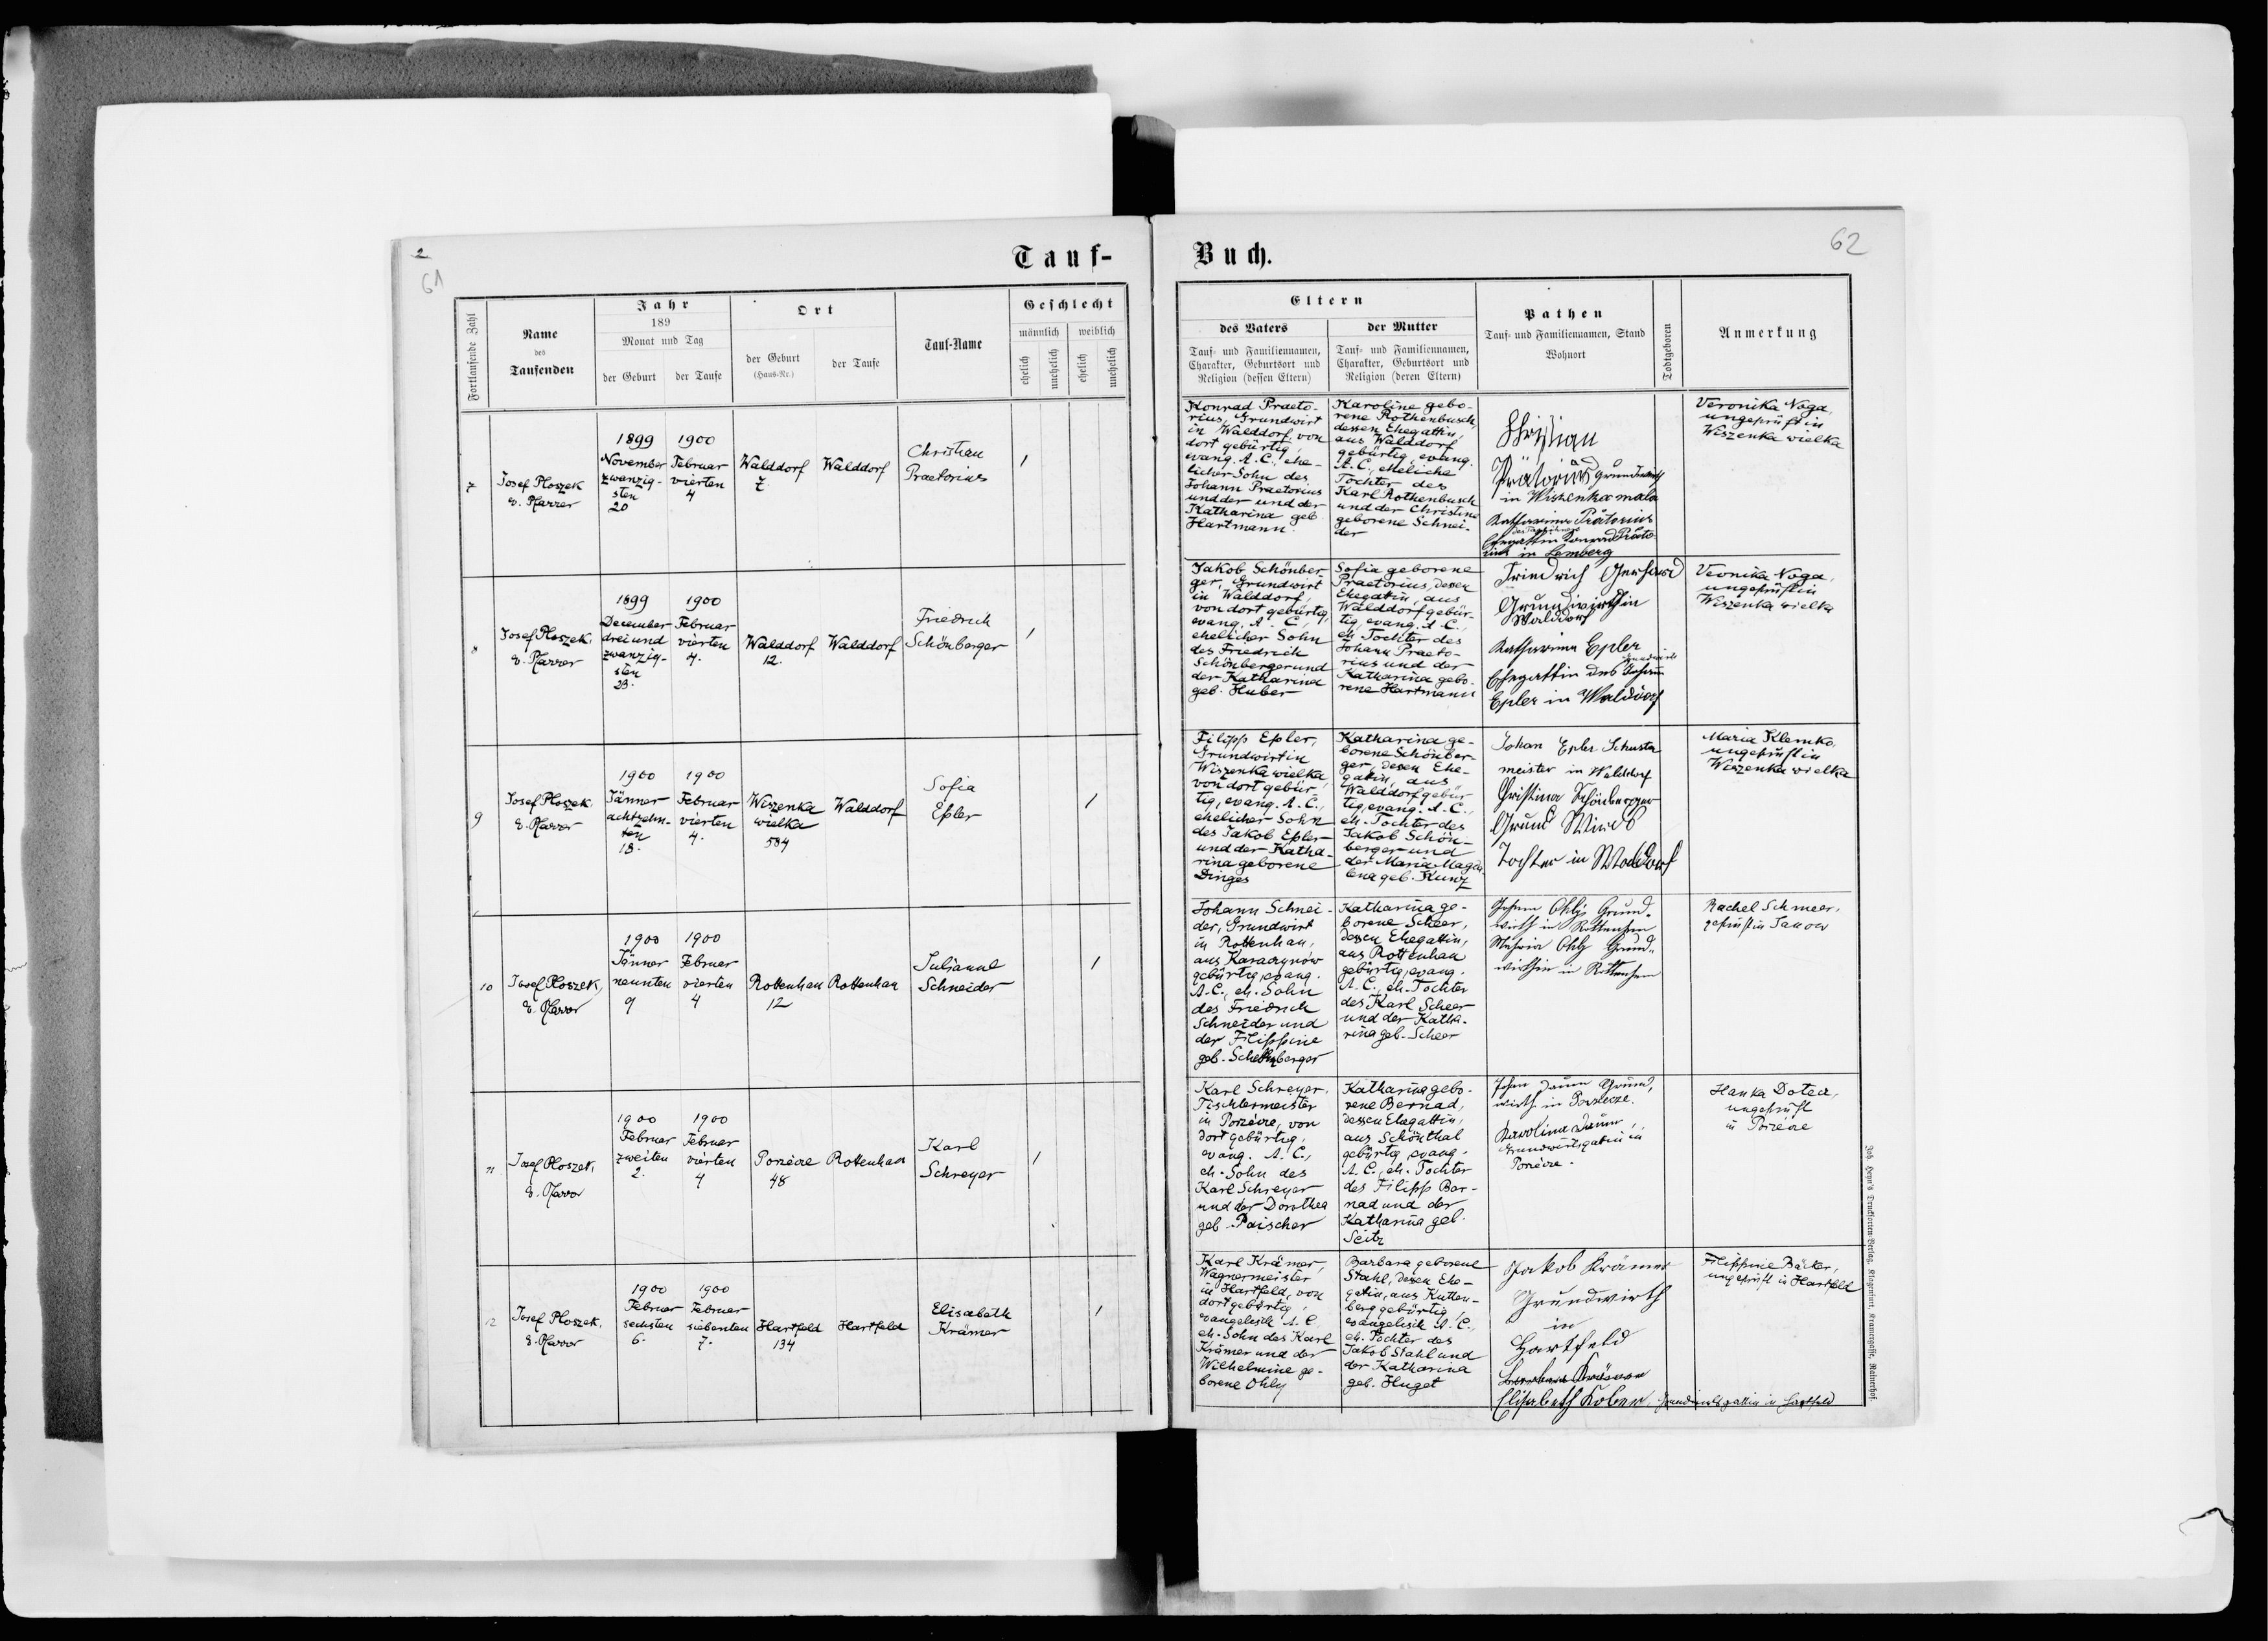 2
61
Tauf-
Fortlaufende Zahl
Name
des
Taufenden
Jahr
189
Monat und Tag
der Geburt
der Taufe
Ort
der Geburt
(Haus-Nr.)
der Taufe
Tauf-Name
Geschlecht
männlich
weiblich
ehelich
unehelich
ehelich
unehelich
7
Josef Ploszek
e. Pfarrer
1899
November
zwanzig-
sten
20
1900
Februar
vierten
4
Walddorf
7.
Walddorf
Christian
Praetorius
1
8
Josef Ploszek,
e. Pfarrer
1899
December
drei und
zwanzig-
sten
23.
1900
Februar
vierten
4.
Walddorf
12.
Walddorf
Friedrich
Schönberger
1
9
Josef Ploszek
e. Pfarrer
1900
Jänner
achtzehn-
ten
18.
1900
Februar
vierten
4.
Wiszenka
wielka
584
Walddorf
Sofia
Epler
1
10
Josef Ploszek,
e. Pfarrer
1900
Jänner
neunten
9
1900
Februar
vierten
4
Rottenhan
12
Rottenhan
Julianne
Schneider
1
11
Josef Ploszek,
e. Pfarrer
1900
Februar
zweiten
2.
1900
Februar
vierten
4
Porzécze
48
Rottenhan
Karl
Schreyer
1
12
Josef Ploszek,
e. Pfarrer
1900
Februar
sechsten
6.
1900
Februar
siebenten
7.
Hartfeld
134
Hartfeld
Elisabeth
Krämer
1
Buch.
62
Eltern
des Vaters
Tauf- und Familiennamen,
Charakter, Geburtsort und
Religion (dessen Eltern)
der Mutter
Tauf- und Familiennamen,
Charakter, Geburtsort und
Religion (deren Eltern)
Pathen
Tauf- und Familiennamen, Stand
Wohnort
Todtgeboren
Anmerkung
Konrad Praeto-
rius, Grundwirt
in Walddorf, von
dort gebürtig,
evang. A. C., ehe-
licher Sohn des
Johann Praetorius
und der und der
Katharina geb.
Hartmann.
Karoline gebo-
rene Rothenbusch,
dessen Ehegattin,
aus Walddorf
gebürtig, evang.
A. C., eheliche
Tochter des
Karl Rothenbusch
und der Christine
geborene Schnei-
der
Christian
Prätorius Grundwirth
in Wiszenka mala
Katharina Prätorius
Ehegattin Konrad Präto-
rius in Lemberg
Veronika Noga,
ungeprüft in
Wiszenka wielka
Jakob Schönber
ger, Grundwirt
in Walddorf,
von dort gebürtig,
evang. A. C.,
ehelicher Sohn
des Friedrich
Schönberger und
der Katharina
geb. Huber
Sofia geborene
Praetorius, dessen
Ehegattin, aus
Walddorf gebür-
tig, evang. A. C.,
eh. Tochter des
Johann Praeto-
rius und der
Katharina gebo-
rene Hartmann
Friedrich Gerhard
Grundwirth in
Walddorf
Katharina Epler
Grundwirts
Ehegattin des Johann
Epler in Walddorf
Veonika Noga,
ungeprüft in
Wiszenka wielka
Filipp Epler,
Grundwirt in
Wiszenka wielka,
von dort gebür-
tig, evang. A. C.,
ehelicher Sohn
des Jakob Epler
und der Katha-
rina geborene
Dinges
Katharina ge-
borene Schönber-
ger, dessen Ehe-
gattin, aus
Walddorf gebür
tig, evang. A. C.,
eh. Tochter des
Jakob Schön-
berger und
der Maria Magda
lena geb. Kunz
Johan Epler Schuster
meister in Walddorf
Christina Schönberger
Grund Wirts
Tochter in Walddorf
Maria Klemko,
ungeprüft in
Wiszenka wielka
Johann Schnei-
der, Grundwirt
in Rottenhan,
aus Karaczynów
gebürtig, evang.
A. C., eh. Sohn
des Friedrich
Schneider und
der Filippine
Katharina ge-
borene Scheer,
dessen Ehegattin,
aus Rottenhan
gebürtig, evang.
A. C., eh. Tochter
des Karl Scheer
und der Katha-
rina geb. Scheer
Johann Ohly Grund-
wirth in Rottenhan
Maria Ohly Grund-
wirthin in Rottenhan
Rachel Schmeer,
geprüft in Janow
Karl Schreyer,
Tischlermeister
in Porzécze, von
dort gebürtig,
evang. A. C.,
eh. Sohn des
Karl Schreyer
und der Dorothea
geb. Paischer
Katharina gebo-
rene Bernad,
dessen Ehegattin,
aus Schönthal
gebürtig, evang.
A. C., eh. Tochter
des Filipp Ber-
nad und der
Katharina geb.
Seitz
Johan Daum Grund,
wirth in Porzecze.
Karolina Daum,
Grundwirtsgatin in
Porzécze.
Hanka Doted,
ungeprüft
in Porzécze
Karl Krämer,
Wagnermeister
in Hartfeld, von
dort gebürtig,
evangelisch A. C.,
eh. Sohn des Karl
Krämer und der
Wilhelmine ge-
borene Ohly
Barbara geborene
Stahl, dessen Ehe-
gatin, aus Kutten-
berg gebürtig,
evangelisch A. C.,
eh. Tochter des
Jakob Stahl und
der Katharina
geb. Huget
Jakob Krämer
Grundwirth
in
Hartfeld
Elisabeth Kober, Grundwirtsgattin in Hartfeld
Filippine Bäcker,
ungeprüft in Hartfeld
Joh. Heyn's Drucksorten-Verlag, Klagenfurt, Kramergasse, Rainerhof.